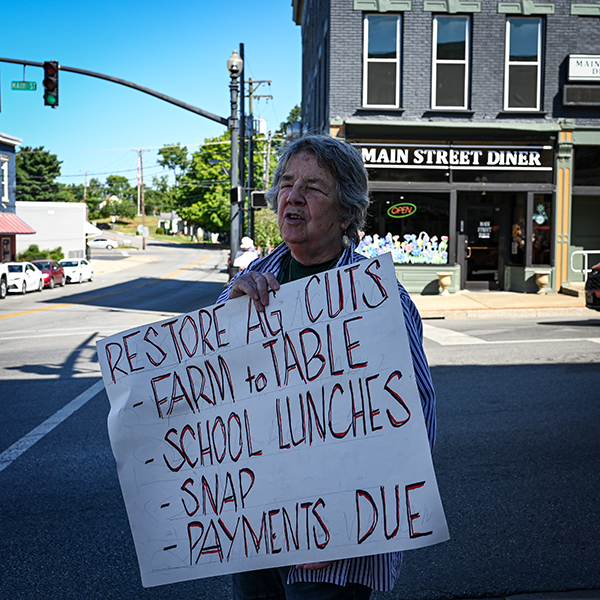 MAIN ST
MAIN STREET DINER
OPEN
RESTORE AG CUTS
- FARM to TABLE
- SCHOOL LUNCHES
- SNAP
- PAYMENTS DUE